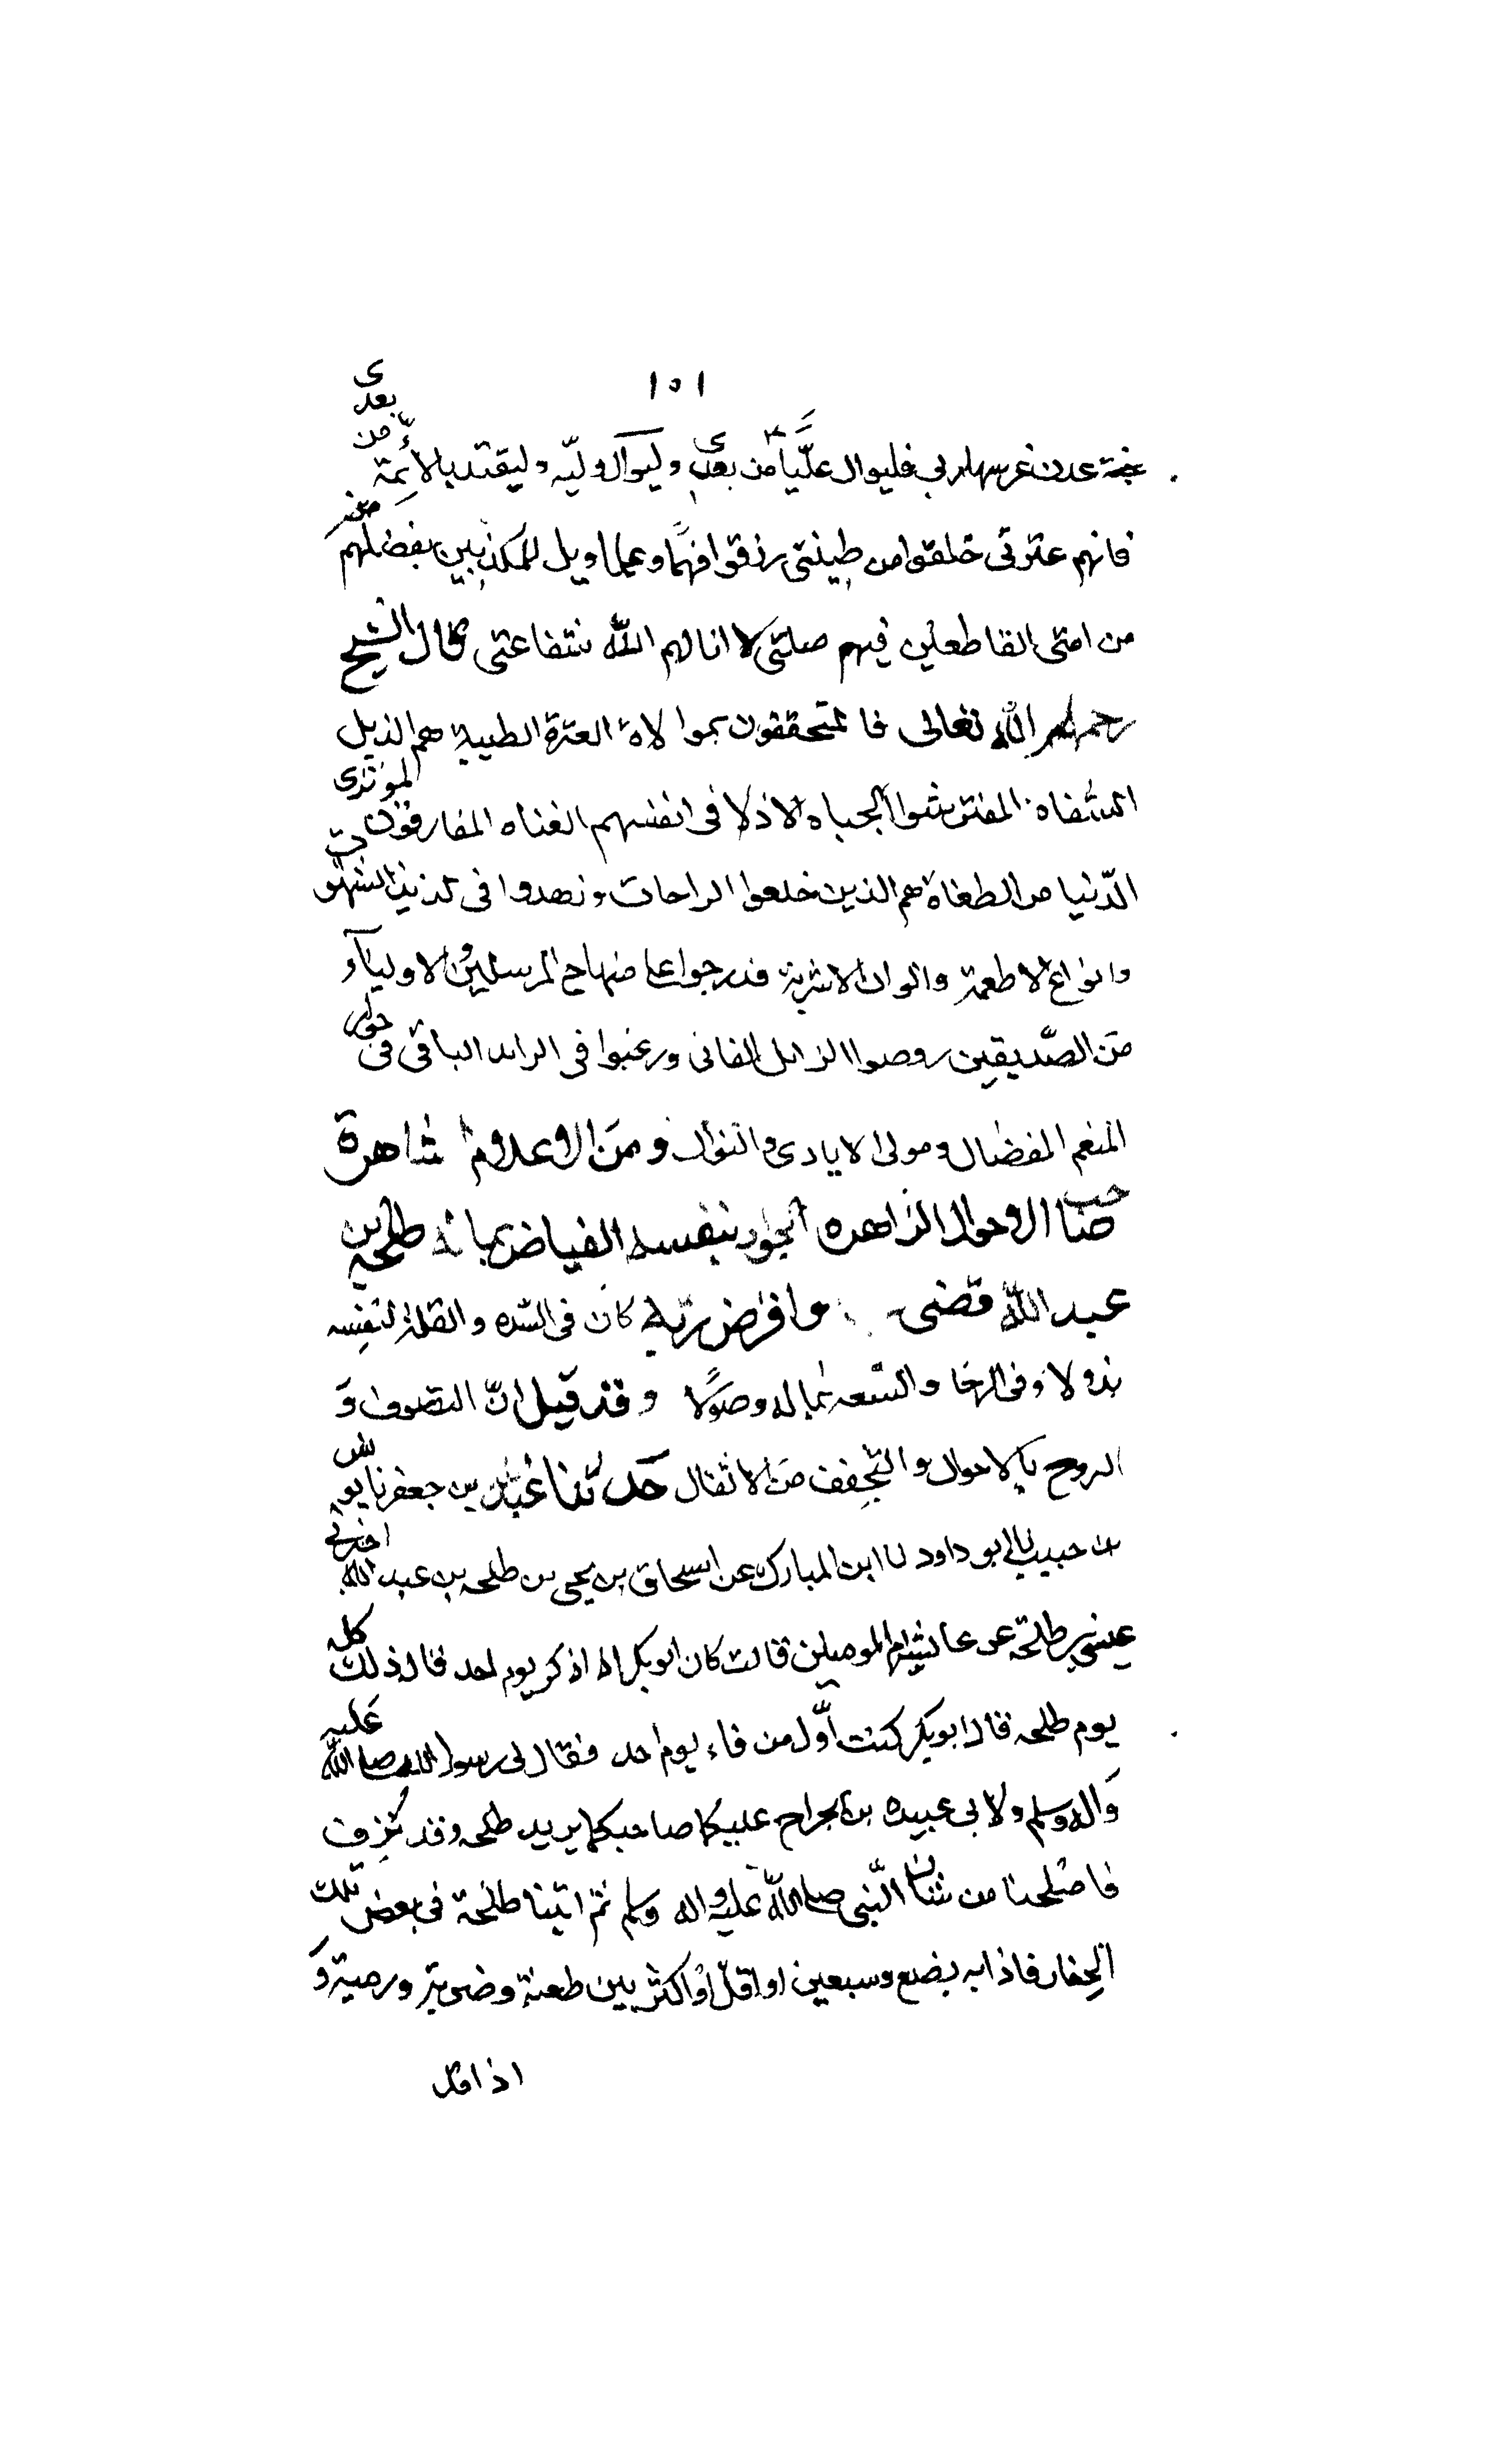 ١٥١
جنة عدن غرسها ربي فليوال عليًّا من بعدى وليوال وليّه وليقتد بالائمة من بعدى
فانهم عترتى خلقوا من طينتى رزقوا فهمًا وعلما ويل للمكذبين بفضلهم
من امتى القاطعين فيهم صلتى لا انالهم الله شفاعتى قال الشيخ
رحمه الله تعالى فالمتحققون بموالاة العترة الطيبة هم الذبل
الشفاه المفترشوا الجباه الاذلا فى انفسهم الغناه المفارقون لموثرى
الدّنيا من الطغاة هم الذين خلعوا الراحات وزهدوا فى لذيذ الشهوات
وانواع الاطعمة والوان الاشربة فدرجوا على منهاج المرسلين والاولياء
من الصّديقين ورفضوا الزايل الفانى ورغبوا فى الزايد الباقى فى جوار
المنعم المفضال ومولى الايادى والنوال ومن الاعلام شاهرة
صاحب الاحوال الزاهره الجواد بنفسه الفياض بماله طلحه بن
عبد الله قضى وافرض ربه كان فى الشده والقلة لنفسه
بذولا وفى الرخا والسعه بماله وصولًا وقد قيل انّ التصوف
الروح بالاحوال والتخفف من الاثقال حدثنا عبد الله بن جعفر نا يونس
بن حبيب نا ابو داود نا ابن المبارك عن اسحاق بن يحيى بن طلحه بن عبد الله اخبرنى
عيسى بن طلحة عن عائشة ام المومنين قالت كان ابو بكر اذا ذكر يوم احد قال ذلك كله
يوم طلحه قال ابو بكر كنت اوّل من فاء يوم احد فقال لى رسول الله صلى الله عليه
واله وسلم ولابى عبيده بن الجراح عليكما صاحبكما يريد طلحه وقد نزف
فاصلحنا من شان النّبى صلى الله عليه واله وسلم ثم اتينا طلحة فى بعض تلك
الجفار فاذا به بضع وسبعين او اقل او اكثر بين طعنة وضربة ورمية و
اذا قد